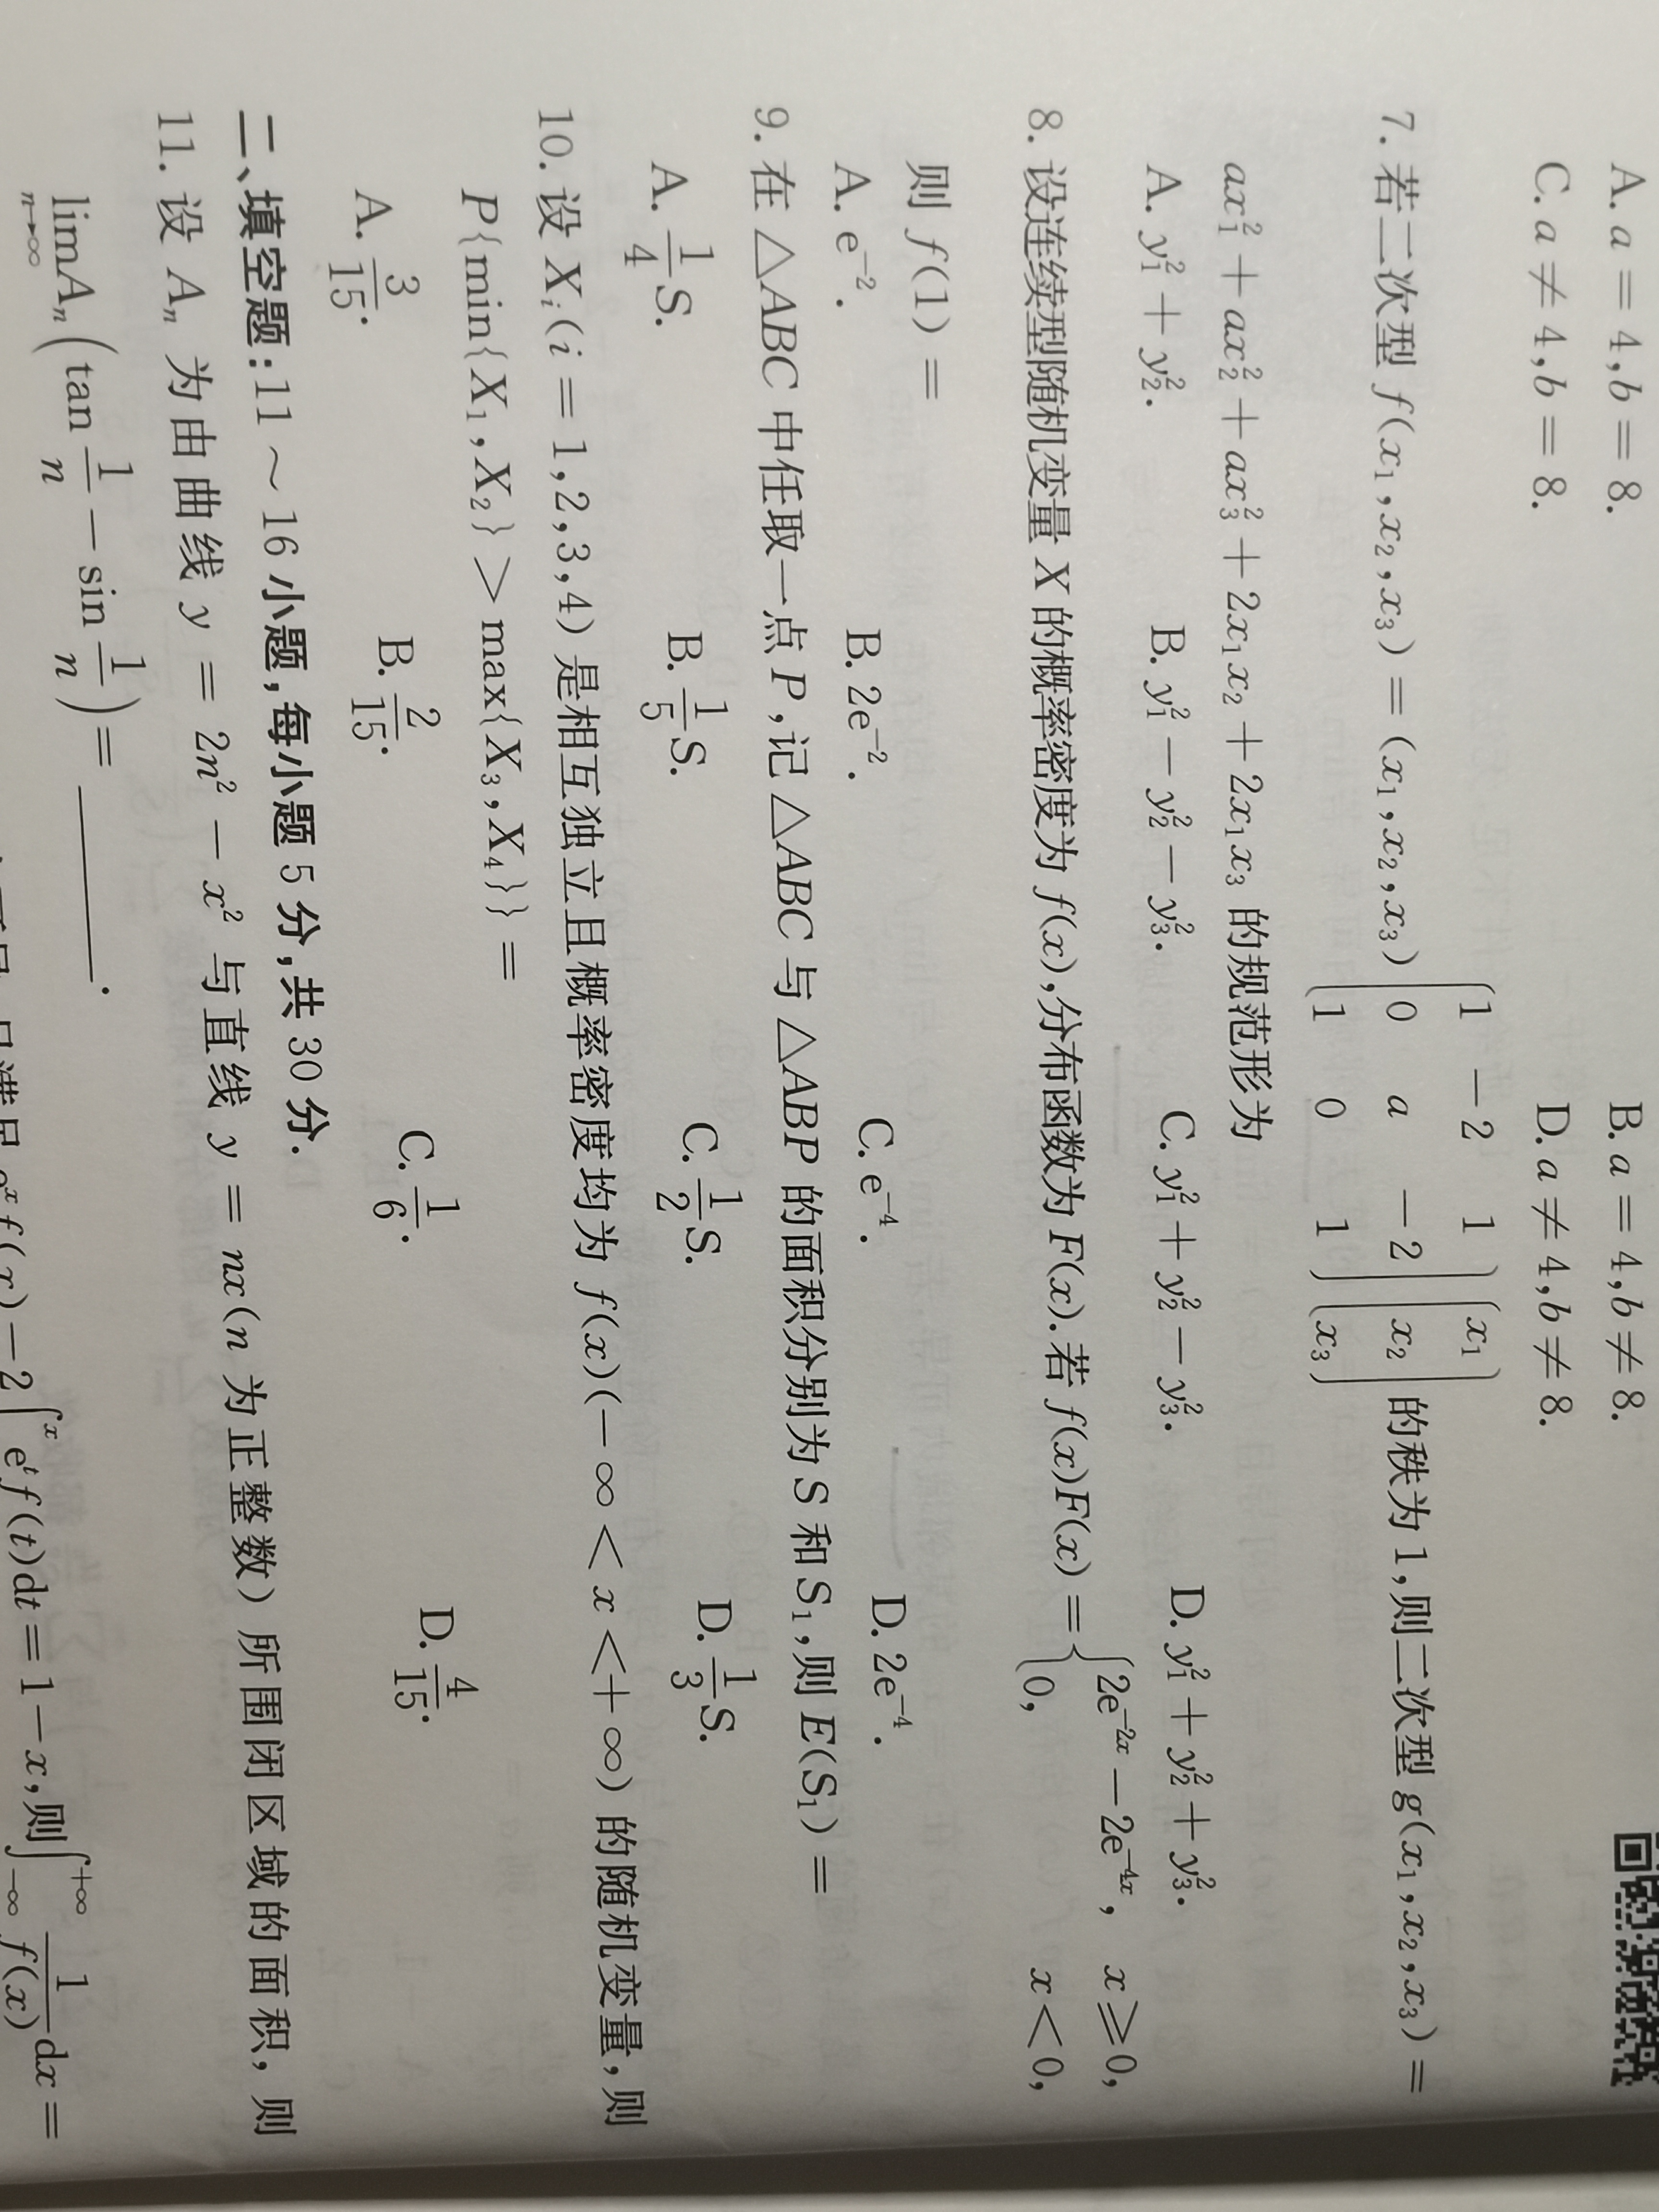 A. a = 4, b = 8.   B. a = 4, b ≠ 8.
C. a ≠ 4, b = 8.   D. a ≠ 4, b ≠ 8.
7. 若二次型 f(x₁,x₂,x₃) = (x₁,x₂,x₃) (1 −2 1; 0 a −2; 1 0 1) (x₁; x₂; x₃) 的秩为 1,则二次型 g(x₁,x₂,x₃) =
ax₁² + ax₂² + ax₃² + 2x₁x₂ + 2x₁x₃ 的规范形为
A. y₁² + y₂².   B. y₁² − y₂² − y₃².   C. y₁² + y₂² − y₃².   D. y₁² + y₂² + y₃².
8. 设连续型随机变量 X 的概率密度为 f(x),分布函数为 F(x).若 f(x)F(x) = {2e⁻²ˣ − 2e⁻⁴ˣ, x ⩾ 0, 0, x < 0,
则 f(1) =
A. e⁻².   B. 2e⁻².   C. e⁻⁴.   D. 2e⁻⁴.
9. 在 △ABC 中任取一点 P,记 △ABC 与 △ABP 的面积分别为 S 和 S₁,则 E(S₁) =
A. 1/4 S.   B. 1/5 S.   C. 1/2 S.   D. 1/3 S.
10. 设 Xᵢ(i = 1,2,3,4) 是相互独立且概率密度均为 f(x)(−∞ < x < +∞) 的随机变量,则
P{min{X₁,X₂} > max{X₃,X₄}} =
A. 3/15.   B. 2/15.   C. 1/6.   D. 4/15.
二、填空题:11 ~ 16 小题,每小题 5 分,共 30 分.
11. 设 Aₙ 为由曲线 y = 2n² − x² 与直线 y = nx(n 为正整数) 所围闭区域的面积,则
lim n→∞ Aₙ(tan 1/n − sin 1/n) = ______.
满足 eˣf(x) − 2∫ˣ eᵗf(t)dt = 1 − x,则∫₋∞⁺∞ 1/f(x) dx =